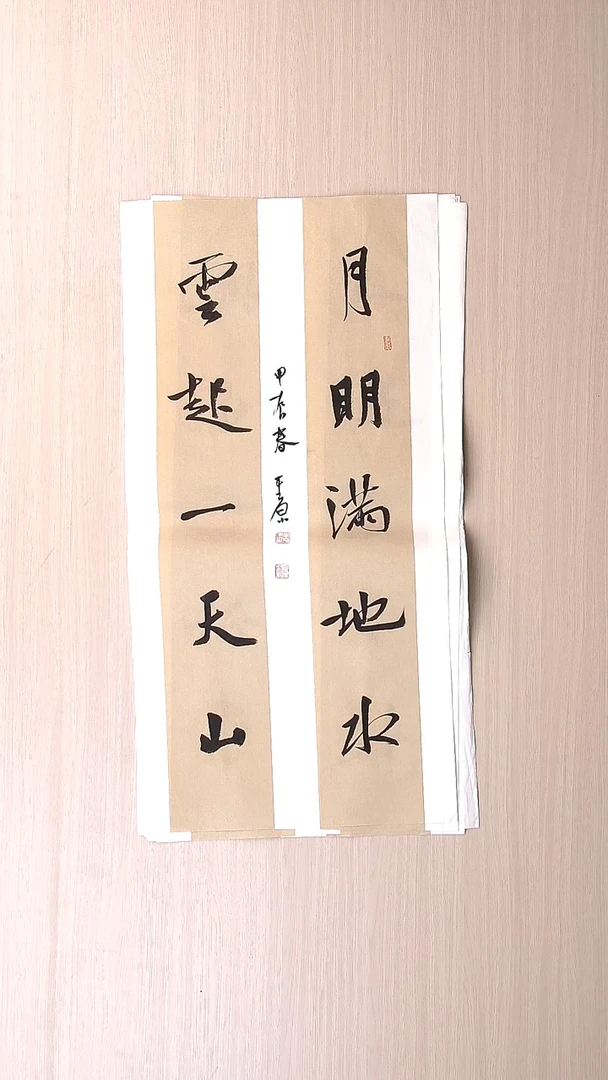 月明满地水
雲起一天山
甲辰春